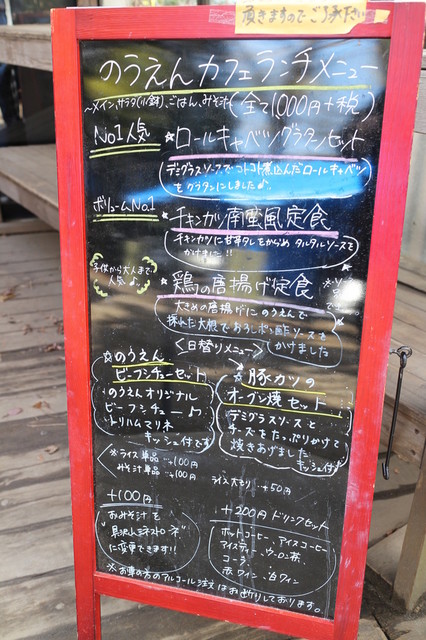 頂きますのでご了承ください
のうえんカフェランチメニュー
〜メイン、サラダ(小鉢)、ごはん、みそ汁(全て1000円+税)
No1人気
★ロールキャベツグラタンセット
デミグラスソースでコトコト煮込んだロールキャベツ
をグラタンにしました♪
ボリュームNo.1
★チキンカツ南蛮風定食
チキンカツに甘辛タレをからめ タルタルソースを
かけました!!
子供から大人まで
人気♪
★鶏の唐揚げ定食
大きめの唐揚げにのうえんで
採れた大根でおろしポン酢ソースを
かけました
<日替りメニュー>
★のうえん
ビーフシチューセット
のうえんオリジナル
ビーフシチュー♪
トリハムマリネ
キッシュ付です
★豚カツの
オーブン焼セット
デミグラスソースと
チーズをたっぷりかけて
焼きあげました
キッシュ付
※ライス単品 …+100円
みそ汁単品 …+100円
ライス大もり …+50円
+100円
おみそ汁を
に変更できます!!
+200円ドリンクセット
ホットコーヒー、アイスコーヒー、
アイスティー、ウーロン茶、
コーラ、
赤ワイン、白ワイン
※お車の方のアルコール注文はお断りしております。